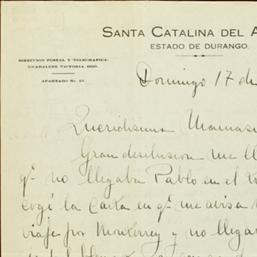 SANTA CATALINA DEL A
ESTADO DE DURANGO.
DIRECCION POSTAL Y TELEGRAFICA:
GUADALUPE VICTORIA, DGO.
APARTADO No.
Domingo 17 de
Queridisima Mamasi
Gran desilusion me ll
qe. no llegaba Pablo en el tr
cogi la carta en qe. me avisa
viaje por Monterrey y no llega